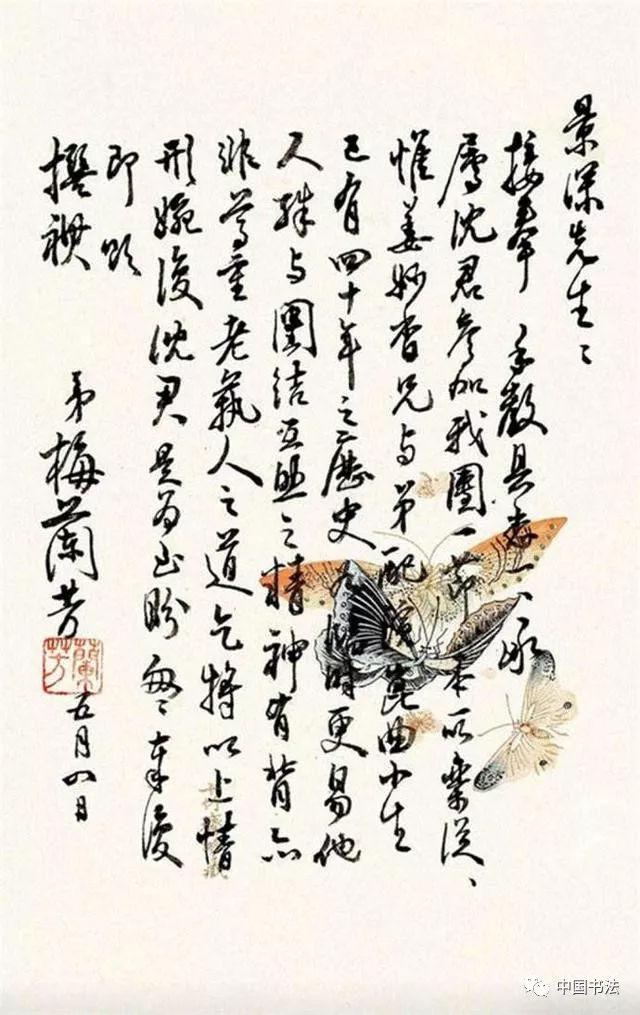 景深先生：
接奉　手教具悉一一承
屬沈君參加我團一節本所樂從、
惟姜妙香兄与弟配演崑曲小生
已有四十年之歷史如臨時更易他
人殊与團結互助之精神有背亦
非尊重老藝人之道乞將以上情
形婉復沈君是為至盼匆匆奉復
即頌
撰祺
弟梅蘭芳
蘭芳
五月四日
中国书法